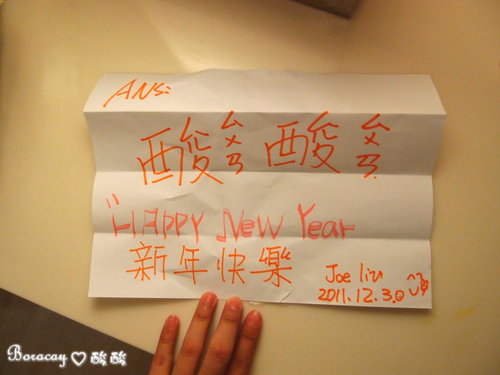 ANS:
酸ㄙㄨㄢ 酸ㄙㄨㄢ
"HAPPY New Year
新年快樂
Joe liu
2011.12.30
Boracay♡酸酸